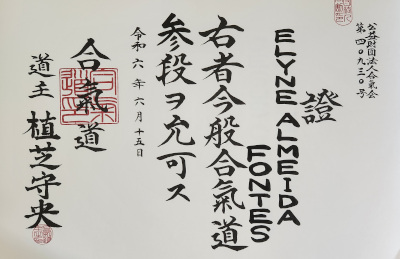 公益財団法人合氣会
第四〇九三〇号
證
ELYNE ALMEIDA
FONTES
右者今般合氣道
参段ヲ允可ス
令和六年六月十五日
合氣道
道主 植芝守央